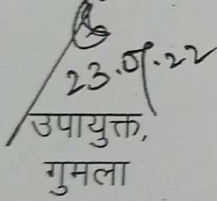 23.09.22
उपायुक्त,
गुमला